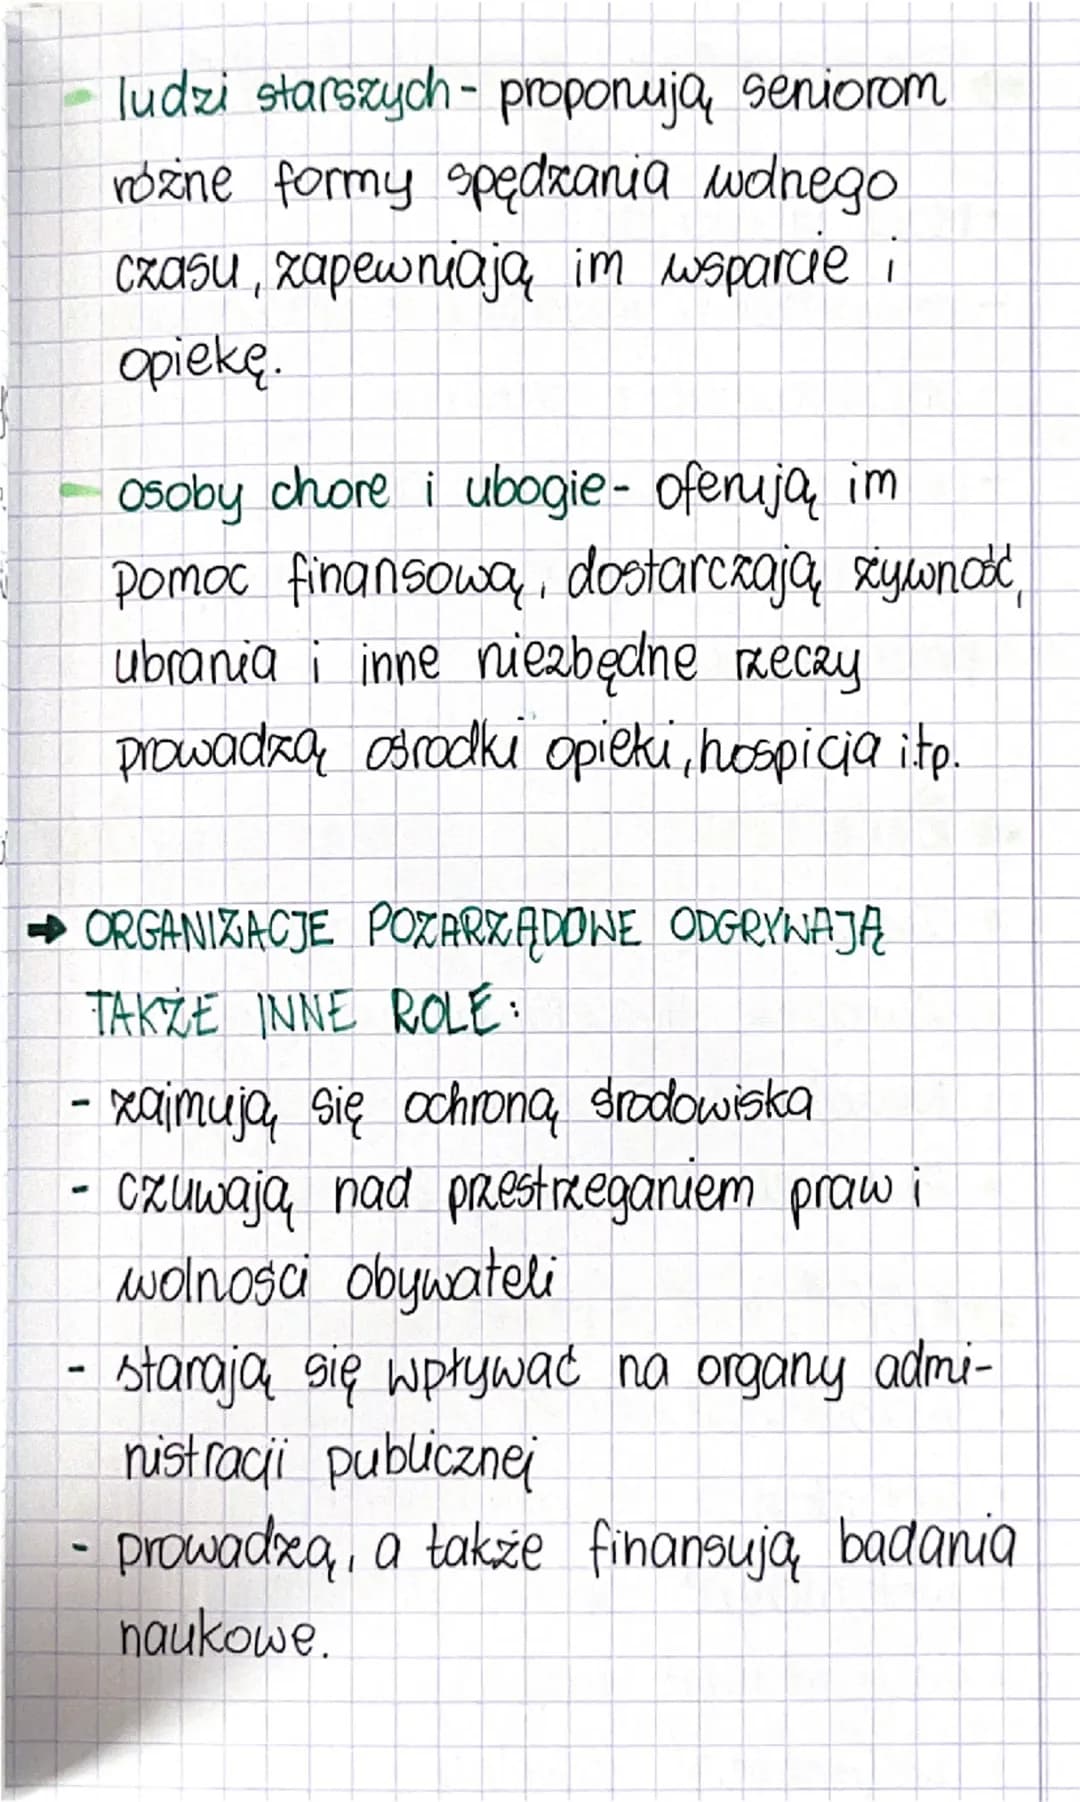 - ludzi starszych - proponują seniorom
różne formy spędzania wolnego
czasu, zapewniają im wsparcie i
opiekę.
- osoby chore i ubogie - oferują im
pomoc finansową, dostarczają żywność,
ubrania i inne niezbędne rzeczy
prowadzą ośrodki opieki, hospicja i.tp.
→ ORGANIZACJE POZARZĄDOWE ODGRYWAJĄ
TAKŻE INNE ROLE:
- zajmują się ochroną środowiska
- czuwają nad przestrzeganiem praw i
wolności obywateli
- starają się wpływać na organy admi-
nistracji publicznej
- prowadzą, a także finansują badania
naukowe.